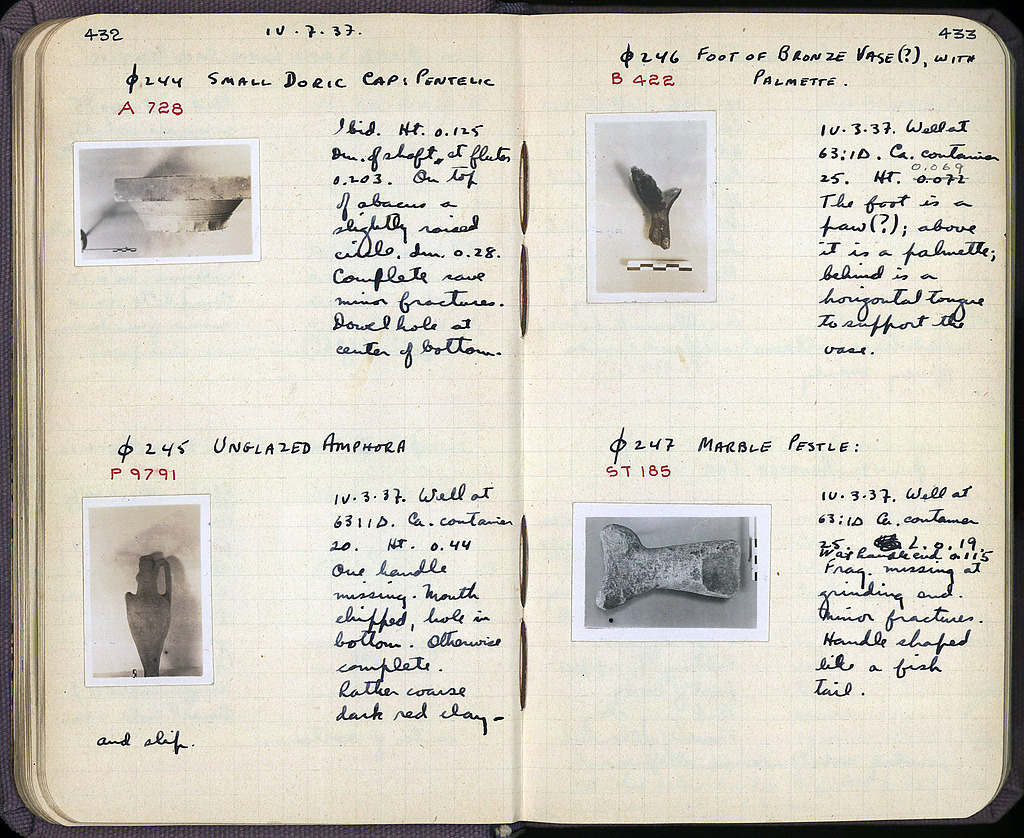 432
IV . 7 . 37.
ϕ 244 SMALL DORIC CAP: PENTELIC
A 728
Ibid. Ht. 0.125
Dm. of shaft, at flutes
0.203. On top
of abacus a
slightly raised
circle, dm. 0.28.
Complete save
minor fractures.
Dowel hole at
center of bottom.
ϕ 245 UNGLAZED AMPHORA
P 9791
IV. 3. 37. Well at
63:1D. Ca. container
20. Ht. 0.44
One handle
missing. Mouth
chipped, hole in
bottom. Otherwise
complete.
Rather coarse
dark red clay –
and slip.
433
ϕ 246 FOOT OF BRONZE VASE(?), WITH
B 422 PALMETTE.
IV. 3. 37. Well at
63:1D. Ca. container
0.069
25. Ht. 0.072
The foot is a
paw(?); above
it is a palmette;
behind is a
horizontal tongue
to support the
vase.
ϕ 247 MARBLE PESTLE:
ST 185
IV. 3. 37. Well at
63:1D Ca. container
25. L. 0.19.
W at handle end 0.115
Frag. missing at
grinding end.
Minor fractures.
Handle shaped
like a fish
tail.